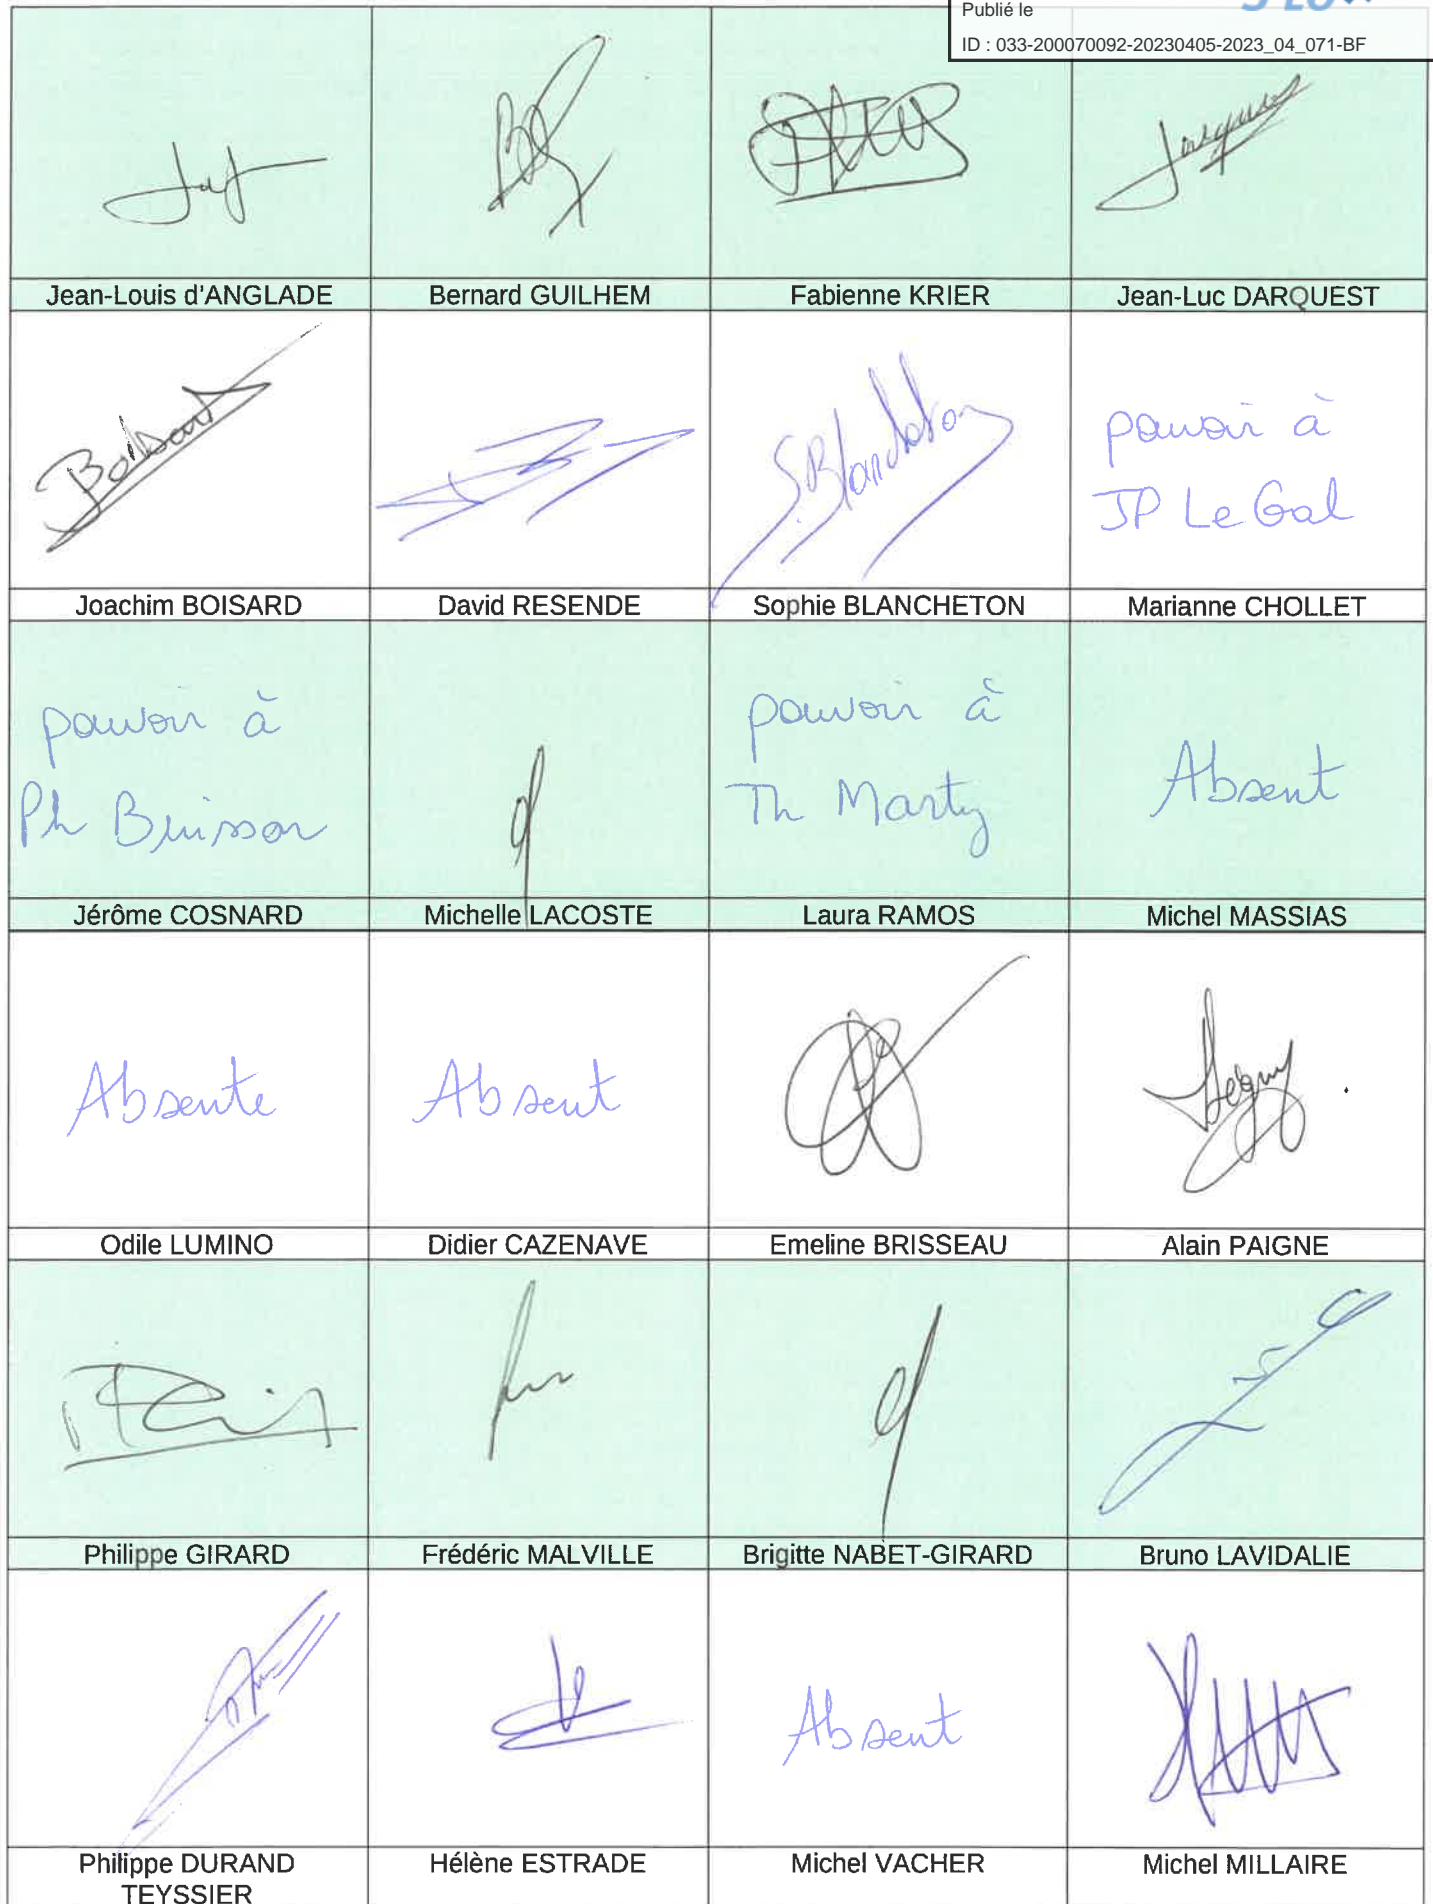 Publié le
ID : 033-200070092-20230405-2023_04_071-BF
Jean-Louis d'ANGLADE
Bernard GUILHEM
Fabienne KRIER
Jean-Luc DARQUEST
S.Blancheton
pouvoir à
JP Le Gal
Joachim BOISARD
David RESENDE
Sophie BLANCHETON
Marianne CHOLLET
pouvoir à
Ph Buisson
pouvoir à
Th Marty
Absent
Jérôme COSNARD
Michelle LACOSTE
Laura RAMOS
Michel MASSIAS
Absente
Absent
Odile LUMINO
Didier CAZENAVE
Emeline BRISSEAU
Alain PAIGNE
Philippe GIRARD
Frédéric MALVILLE
Brigitte NABET-GIRARD
Bruno LAVIDALIE
Absent
Philippe DURAND
TEYSSIER
Hélène ESTRADE
Michel VACHER
Michel MILLAIRE